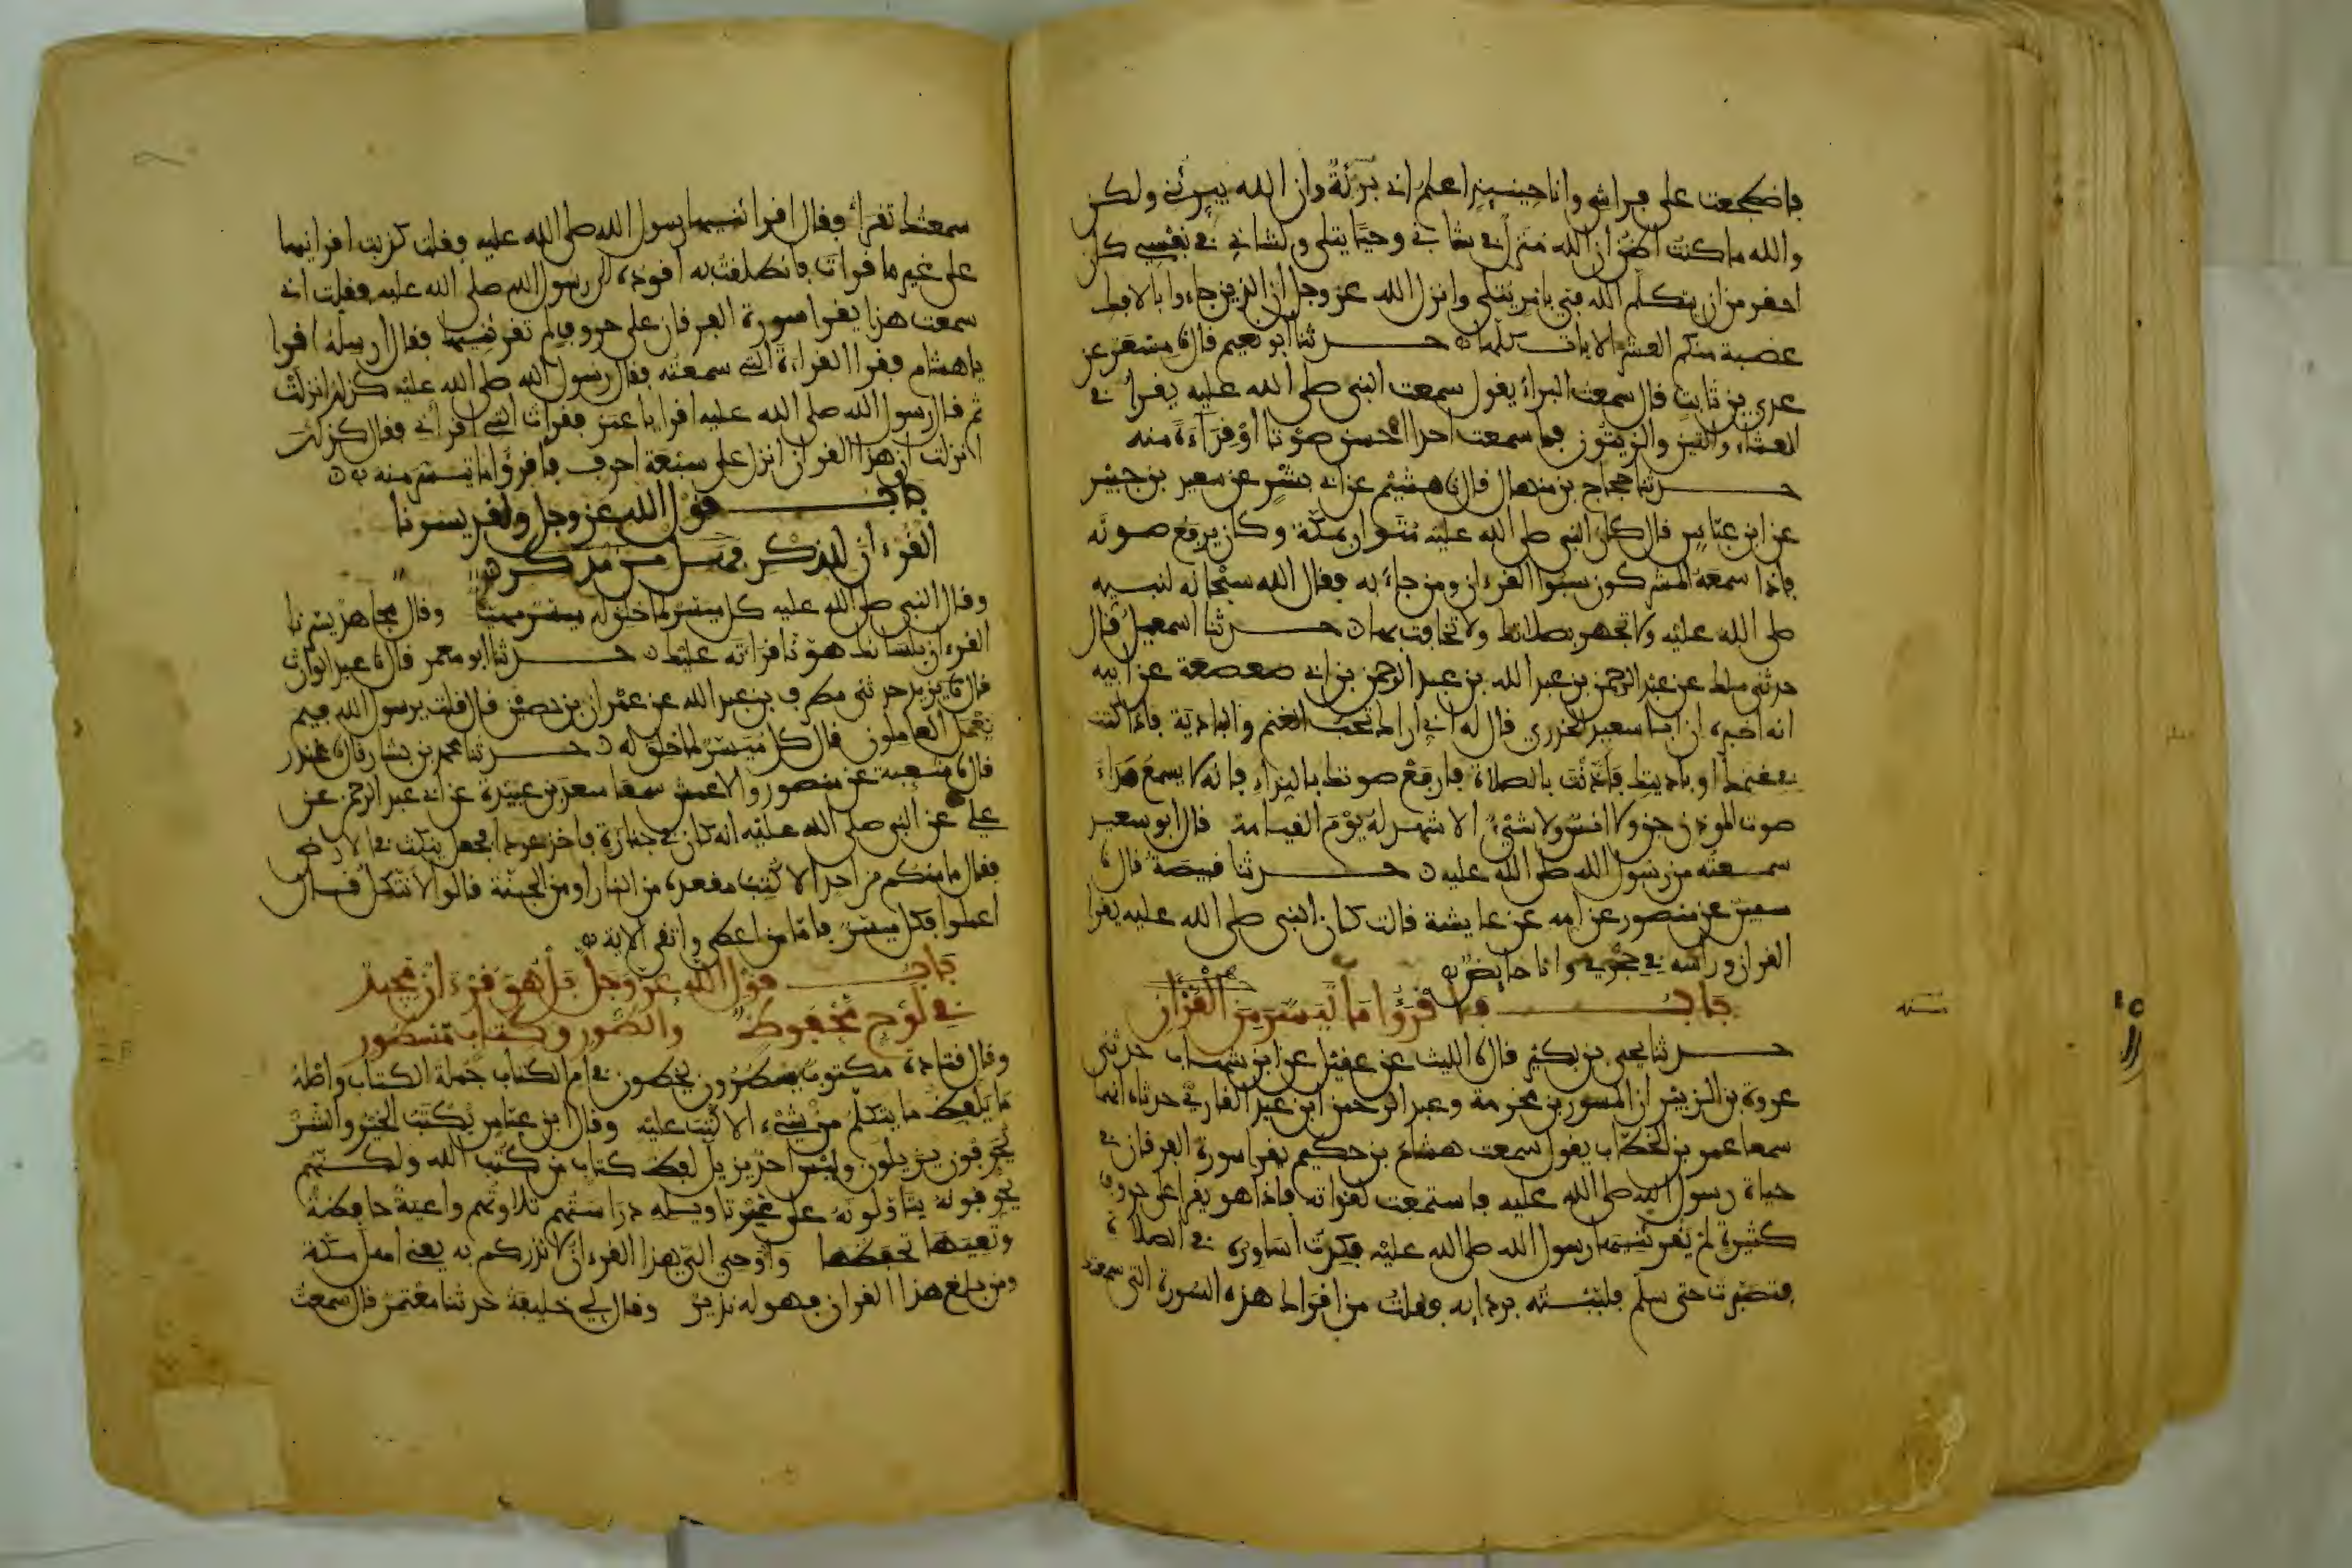 فاضطجعت على فراشي وانا حينيذ اعلم اني بريئة وان الله يبرئني ولكن
والله ما كنت اظن ان الله منزل في شاني وحيا يتلى ولشاني في نفسي كان
احقر من ان يتكلم الله في بامر يتلى وانزل الله عز وجل ان الذين جاءوا بالافك
عصبة منكم العشر الايات كلها حدثنا ابو نعيم قال نا مسعر عن
عدي بن ثابت قال سمعت البراء يقول سمعت النبي صلى الله عليه يقرا في
العشاء والتين والزيتون فما سمعت احدا احسن صوتا او قراءة منه
حدثنا حجاج بن منهال قال نا هشيم عن ابي بشر عن سعيد بن جبير
عن ابن عباس قال كان النبي صلى الله عليه متوار بمكة وكان يرفع صوته
فاذا سمعه المشركون سبوا القرءان ومن جاء به فقال الله سبحانه لنبيه
صلى الله عليه ولا تجهر بصلاتك ولا تخافت بها حدثنا اسمعيل قال
حدثني ملك عن عبد الرحمن بن عبد الله بن عبد الرحمن بن ابي صعصعة عن ابيه
انه اخبره ان ابا سعيد الخدري قال له اني اراك تحب الغنم والبادية فاذا كنت
في غنمك او باديتك فاذنت بالصلاة فارفع صوتك بالنداء فانه لا يسمع مدا
صوت الموذن جن ولا انس ولا شيء الا شهد له يوم القيامة قال ابو سعيد
سمعته من رسول الله صلى الله عليه حدثنا قبيصة قال نا
سفين عن منصور عن امه عن عايشة قالت كان النبي صلى الله عليه يقرا
القران وراسه في حجري وانا حايض
باب فاقرؤا ما تيسر من القرآن
حدثنا يحيى بن بكير قال نا الليث عن عقيل عن ابن شهاب حدثني
عروة بن الزبير ان المسور بن مخرمة وعبد الرحمن ابن عبد القاري حدثاه انهما
سمعا عمر بن الخطاب يقول سمعت هشام بن حكيم يقرا سورة الفرقان في
حياة رسول الله صلى الله عليه فاستمعت لقراته فاذا هو يقرا على حروف
كثيرة لم يقرئنيها رسول الله صلى الله عليه فكدت اساوره في الصلاة
فتصبرت حتى سلم فلببته بردايه فقلت من اقراك هذه السورة التي سمعتك
سمعتك تقرا فقال اقرانيها رسول الله صلى الله عليه فقلت كذبت اقرانيها
على غير ما قرات فانطلقت به اقوده الى رسول الله صلى الله عليه فقلت اني
سمعت هذا يقرا سورة الفرقان على حروف لم تقرئنيها فقال ارسله اقرا
يا هشام فقرا القراءة التي سمعته فقال رسول الله صلى الله عليه كذلك انزلت
ثم قال رسول الله صلى الله عليه اقرا يا عمر فقرات التي اقراني فقال كذلك
انزلت ان هذا القران انزل على سبعة احرف فاقرؤا ما تيسر منه
باب قول الله عز وجل ولقد يسرنا
القرءان للذكر فهل من مدكر
وقال النبي صلى الله عليه كل ميسر لما خلق له ميسر مهيا وقال مجاهد يسرنا
القرءان بلسانك هونا قراته عليك حدثنا ابو معمر قال نا عبد الوارث
قال نا يزيد حدثني مطرف بن عبد الله عن عمران بن حصين قال قلت يرسول الله فيم
يعمل العاملون قال كل ميسر لما خلق له حدثنا محمد بن بشار قال نا غندر
قال نا شعبة عن منصور والاعمش سمعا سعد بن عبيدة عن ابي عبد الرحمن عن
علي عن النبي صلى الله عليه انه كان في جنازة فاخذ عودا فجعل ينكت في الارض
فقال ما منكم من احد الا كتب مقعده من النار او من الجنة قالوا الا نتكل قال
اعملوا فكل ميسر فاما من اعطى واتقى الاية
باب قول الله عز وجل بل هو قرءان مجيد
في لوح محفوظ والطور وكتاب مسطور
وقال قتادة مكتوب يسطرون يخطون في ام الكتاب جملة الكتاب واصله
ما يلفظ ما يتكلم من شيء الا كتب عليه وقال ابن عباس يكتب الخير والشر
يحرفون يزيلون وليس احد يزيل لفظ كتاب من كتب الله ولكنهم
يحرفونه يتاولونه على غير تاويله دراستهم تلاوتهم واعية حافظة
وتعيها تحفظها واوحي الي هذا القرءان لانذركم به يعني اهل مكة
ومن بلغ هذا القران فهو له نذير وقال لي خليفة حدثنا معتمر قال سمعت